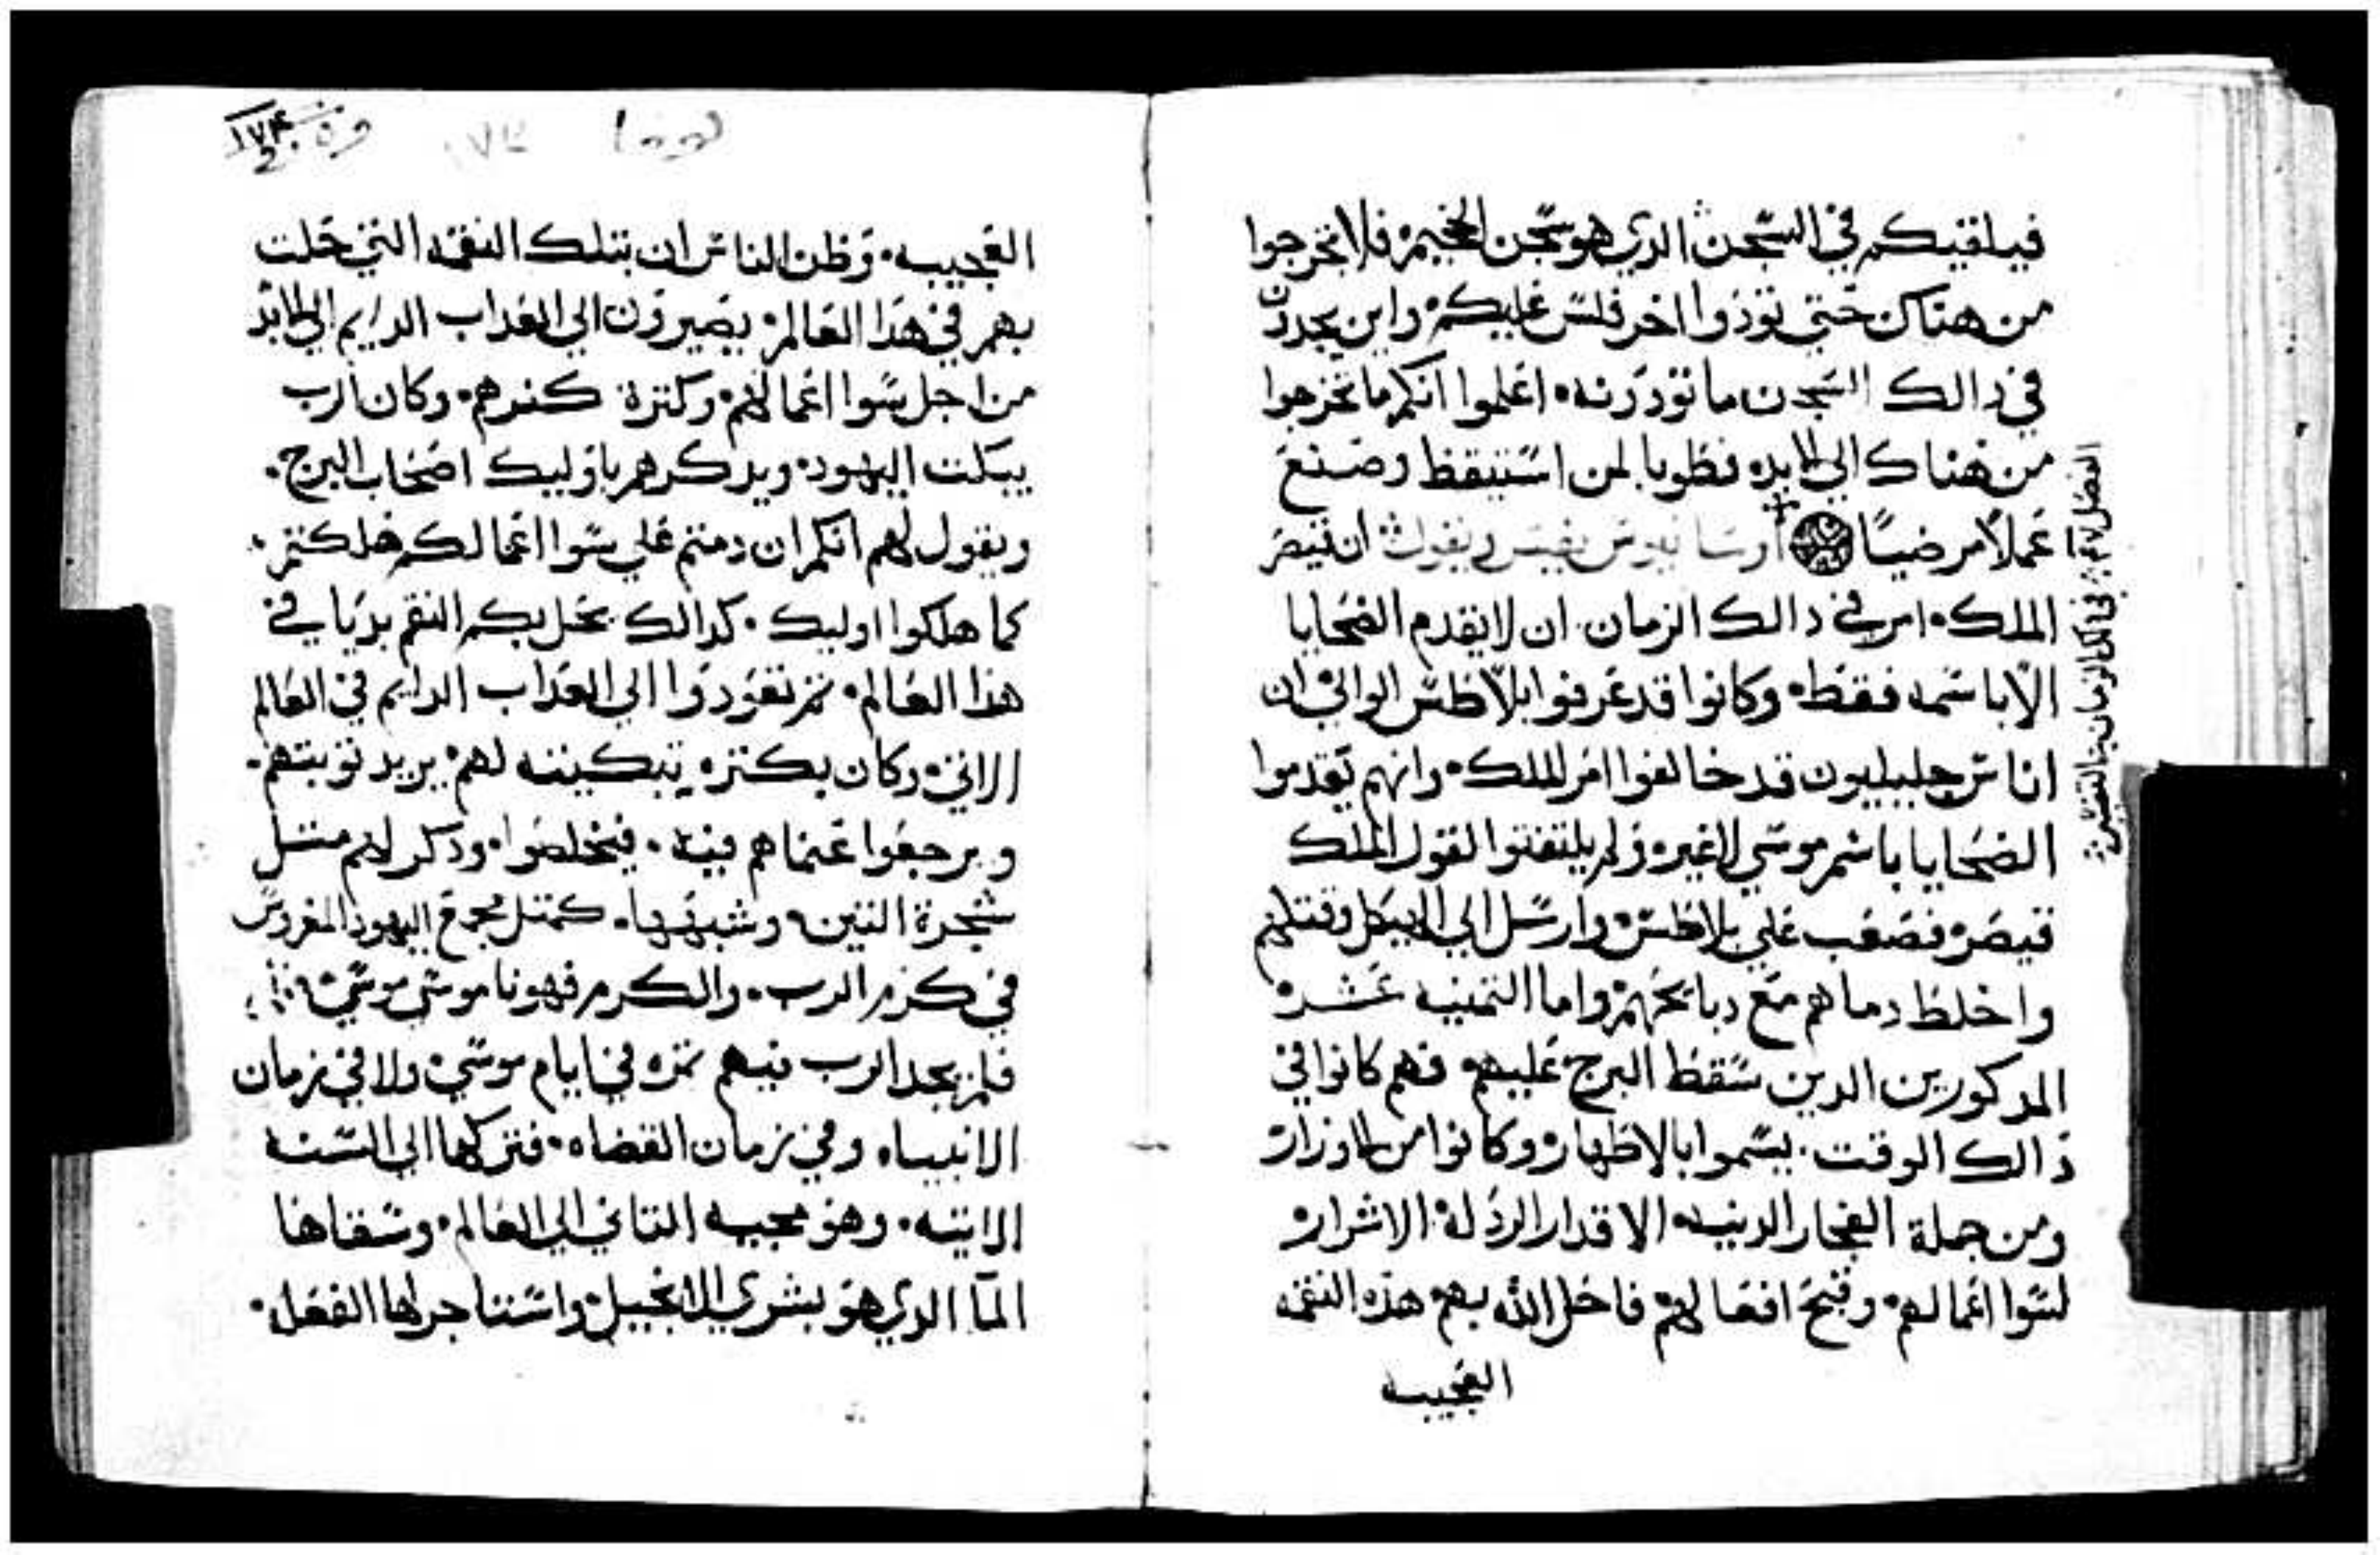 فيلقيكم في السجن الدي هو سجن الجحيم فلا تخرجوا
من هناك حتي تودوا اخر فلس عليكم واين يجدون
في دالك السجن ما تودونه اعلموا انكم ما تخرجوا
من هناك الي الابد فطوبا لمن استيقظ وصنع
عملاً مرضياً ساويرس يفسر ويقول ان قيصر
الملك امر في دالك الزمان ان لا يقدم الضحايا
الا باسمه فقط وكانوا قد عرفوا بلاطس الوالي ان
اناس جليليون قد خالفوا امر الملك وانهم يقدموا
الضحايا باسم موسي لا غير ولم يلتفتوا لقول الملك
قيصر فصعب علي بلاطس وارسل الي الهيكل وقتلهم
واخلط دماهم مع دبايحهم واما التمنيه عشر
المدكورين الدين سقط البرج عليهم فهم كانوا في
دالك الوقت يسموا بالاظهار وكانوا من الاوزار
ومن جملة الفجار الدينيه الاقدار الردلة الاشرار
لسوا اعمالهم وقبح افعالهم فاحل الله بهم هده النقمه
العجيبه
العجيبه وظن الناس ان بتلك النقمه التي حلت
بهم في هدا العالم يصيرون الي العداب الدايم الي الابد
من اجل سوا اعمالهم وكترة كفرهم وكان الرب
يبكت اليهود ويدكرهم باوليك اصحاب البرج
ويقول لهم انكم ان دمتم علي سوا اعمالكم هلكتم
كما هلكوا اوليك كدالك تحل بكم النقم بديا في
هدا العالم تم تعودوا الي العداب الدايم في العالم
الاتي وكان بكتره تبكيته لهم يريد توبتهم
ويرجعوا عنما هم فيه فيخلصوا ودكر لهم متل
شجرة التين وشبهها كمتل مجمع اليهود المغروس
في كرم الرب والكرم فهو ناموس موسي
فلم يجد الرب فيهم تمره في ايام موسي ولا في زمان
الانبياء وفي زمان القضاه فتركها الي السنه
الاتيه وهو مجيه التاني الي العالم وسقاها
الما الدي هو بشري الانجيل واستاجر لها الفعل